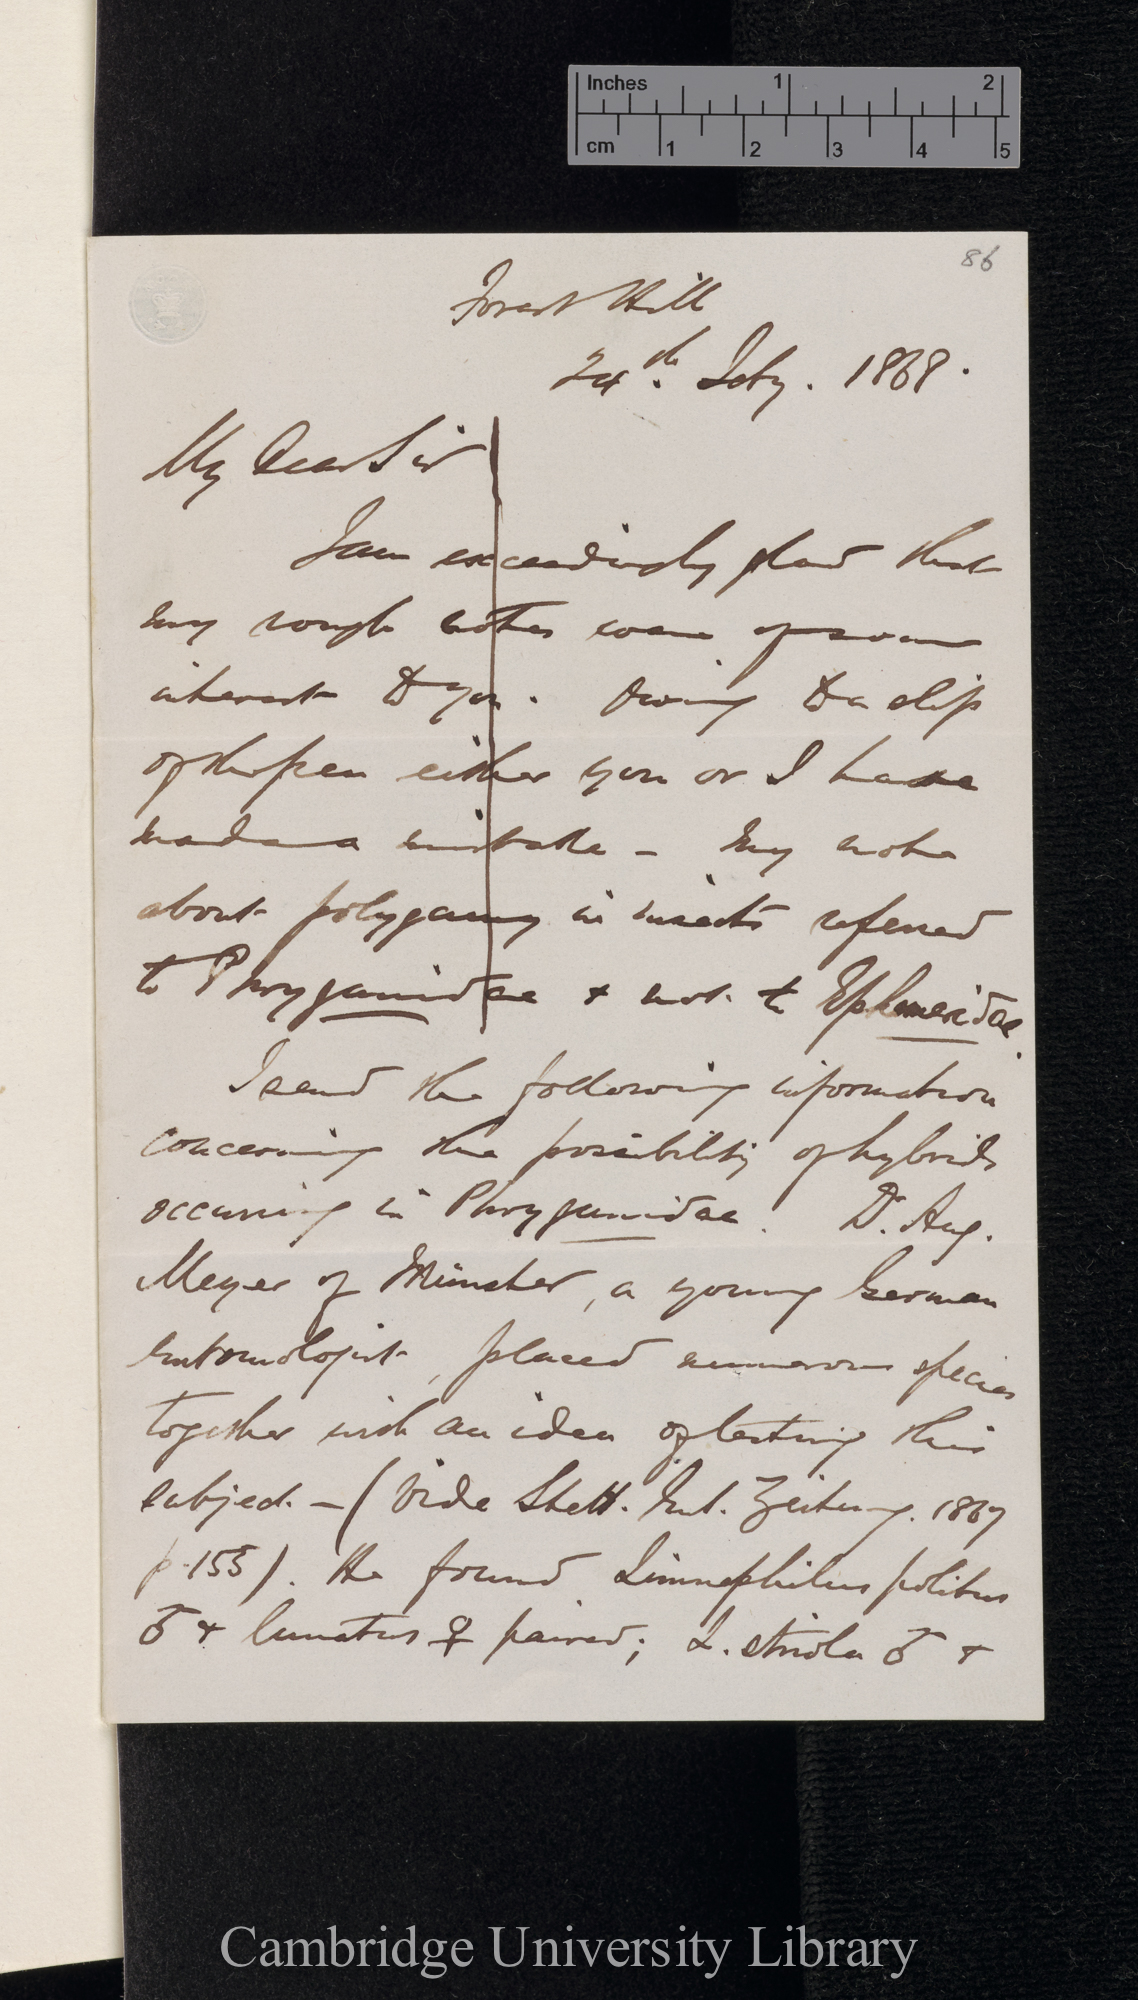 Inches 1 2
cm 1 2 3 4 5
86
Forest Hill
24th. Feby. 1868.
My Dear Sir
I am exceedingly glad that
my rough notes were of some
interest to you. Owing to a slip
of the pen either you or I have
made a mistake – my note
about polygamy in insects referred
to Phryganidae & not to Ephemeridae.
I send the following information
concerning the possibility of hybrids
occurring in Phryganidae. Dr. Aug.
Meyer of Münster, a young German
entomologist, placed numerous species
together with an idea of testing this
subject – (Vide Stett. Ent. Zeitung. 1867
p. 155). He found Limnophilus politus
♂ & lunatus ♀ paired; L. striola ♂ &
Cambridge University Library